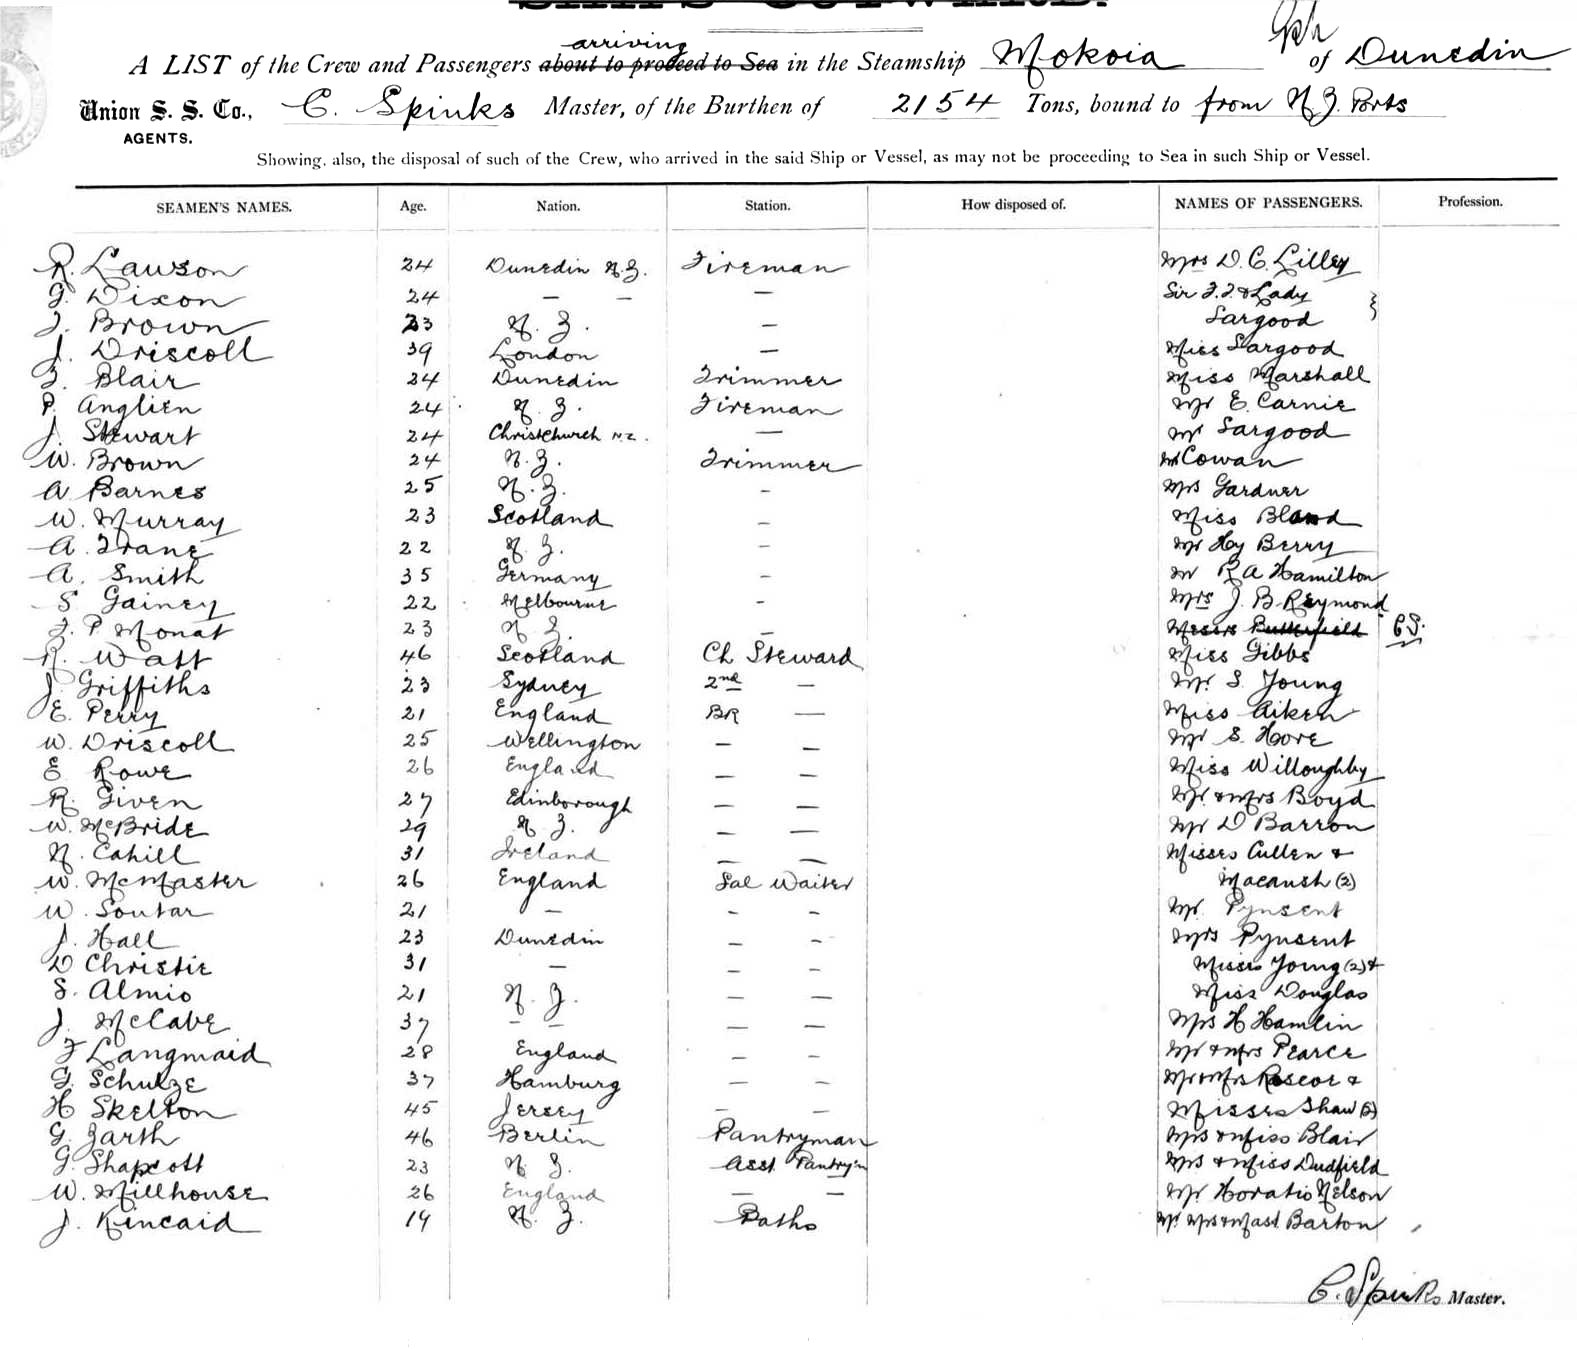 arriving
A LIST of the Crew and Passengers about to proceed to Sea in the Steamship Mokoia of Dunedin
Union S. S. Co., C. Spinks Master, of the Burthen of 2154 Tons, bound to from N Z. Ports
AGENTS.
Showing, also, the disposal of such of the Crew, who arrived in the said Ship or Vessel, as may not be proceeding to Sea in such Ship or Vessel.
SEAMEN'S NAMES. Age. Nation. Station. How disposed of. NAMES OF PASSENGERS. Profession.
R. Lawson 24 Dunedin N.Z. Fireman Mrs D. C. Lilley
G. Dixon 24 — — — Sir F. T. & Lady
J. Brown 23 N. Z. — Sargood
J. Driscoll 39 London — Miss Sargood
F. Blair 24 Dunedin Trimmer Miss Marshall
P. Anglien 24 N. Z. Fireman Mr E. Carnie
J. Stewart 24 Christchurch N.Z. — Mr Sargood
W. Brown 24 N. Z. Trimmer Mr Cowan
A Barnes 25 N. Z. - Mrs Gardner
W. Murray 23 Scotland - Miss Bland
A. Trane 22 N. Z. - Mr Hy Berry
A. Smith 35 Germany - Mr R A Hamilton
S. Gainey 22 Melbourne - Mrs J. B. Reymond
F. P. Monat 23 N Z. — Messrs Butterfield CS.
R. Watt 46 Scotland Ch Steward Miss Gibbs
J. Griffiths 23 Sydney 2nd — Mr. S. Young
E. Perry 21 England BR — Miss Aiken
W. Driscoll 25 Wellington — — Mr S. Hore
E Rowe 26 England — — Miss Willoughby
R. Given 27 Edinborough — — Mr. & Mrs Boyd
W. McBride 29 N Z. — — Mr D Barron
N. Cahill 31 Ireland — — Misses Cullen &
W. McMaster 26 England Sal Waiter Macansh (2)
W. Soutar 21 — - - Mr. Pynsent
J. Hall 23 Dunedin - - Mrs Pynsent
D Christie 31 — - - Misses Young (2) &
S. Almio 21 N. Z. — — Miss Douglas
J. McCabe 37 — — — — Mrs H Hamlin
F Langmaid 28 England — — Mr & Mrs Pearce
G. Schulze 37 Hamburg — — Mr & Mrs Roscoe &
H Skelton 45 Jersey — — Misses Shaw (2)
G. Zarth 46 Berlin Pantryman Mrs & Miss Blair
G. Shapcott 23 N. Z. Asst Pantry'n Mrs & Miss Dudfield
W. Millhouse 26 England — — Mr. Horatio Nelson
J. Kincaid 19 N. Z. Baths Mr. Mrs & Mast Barton
C. Spinks Master.